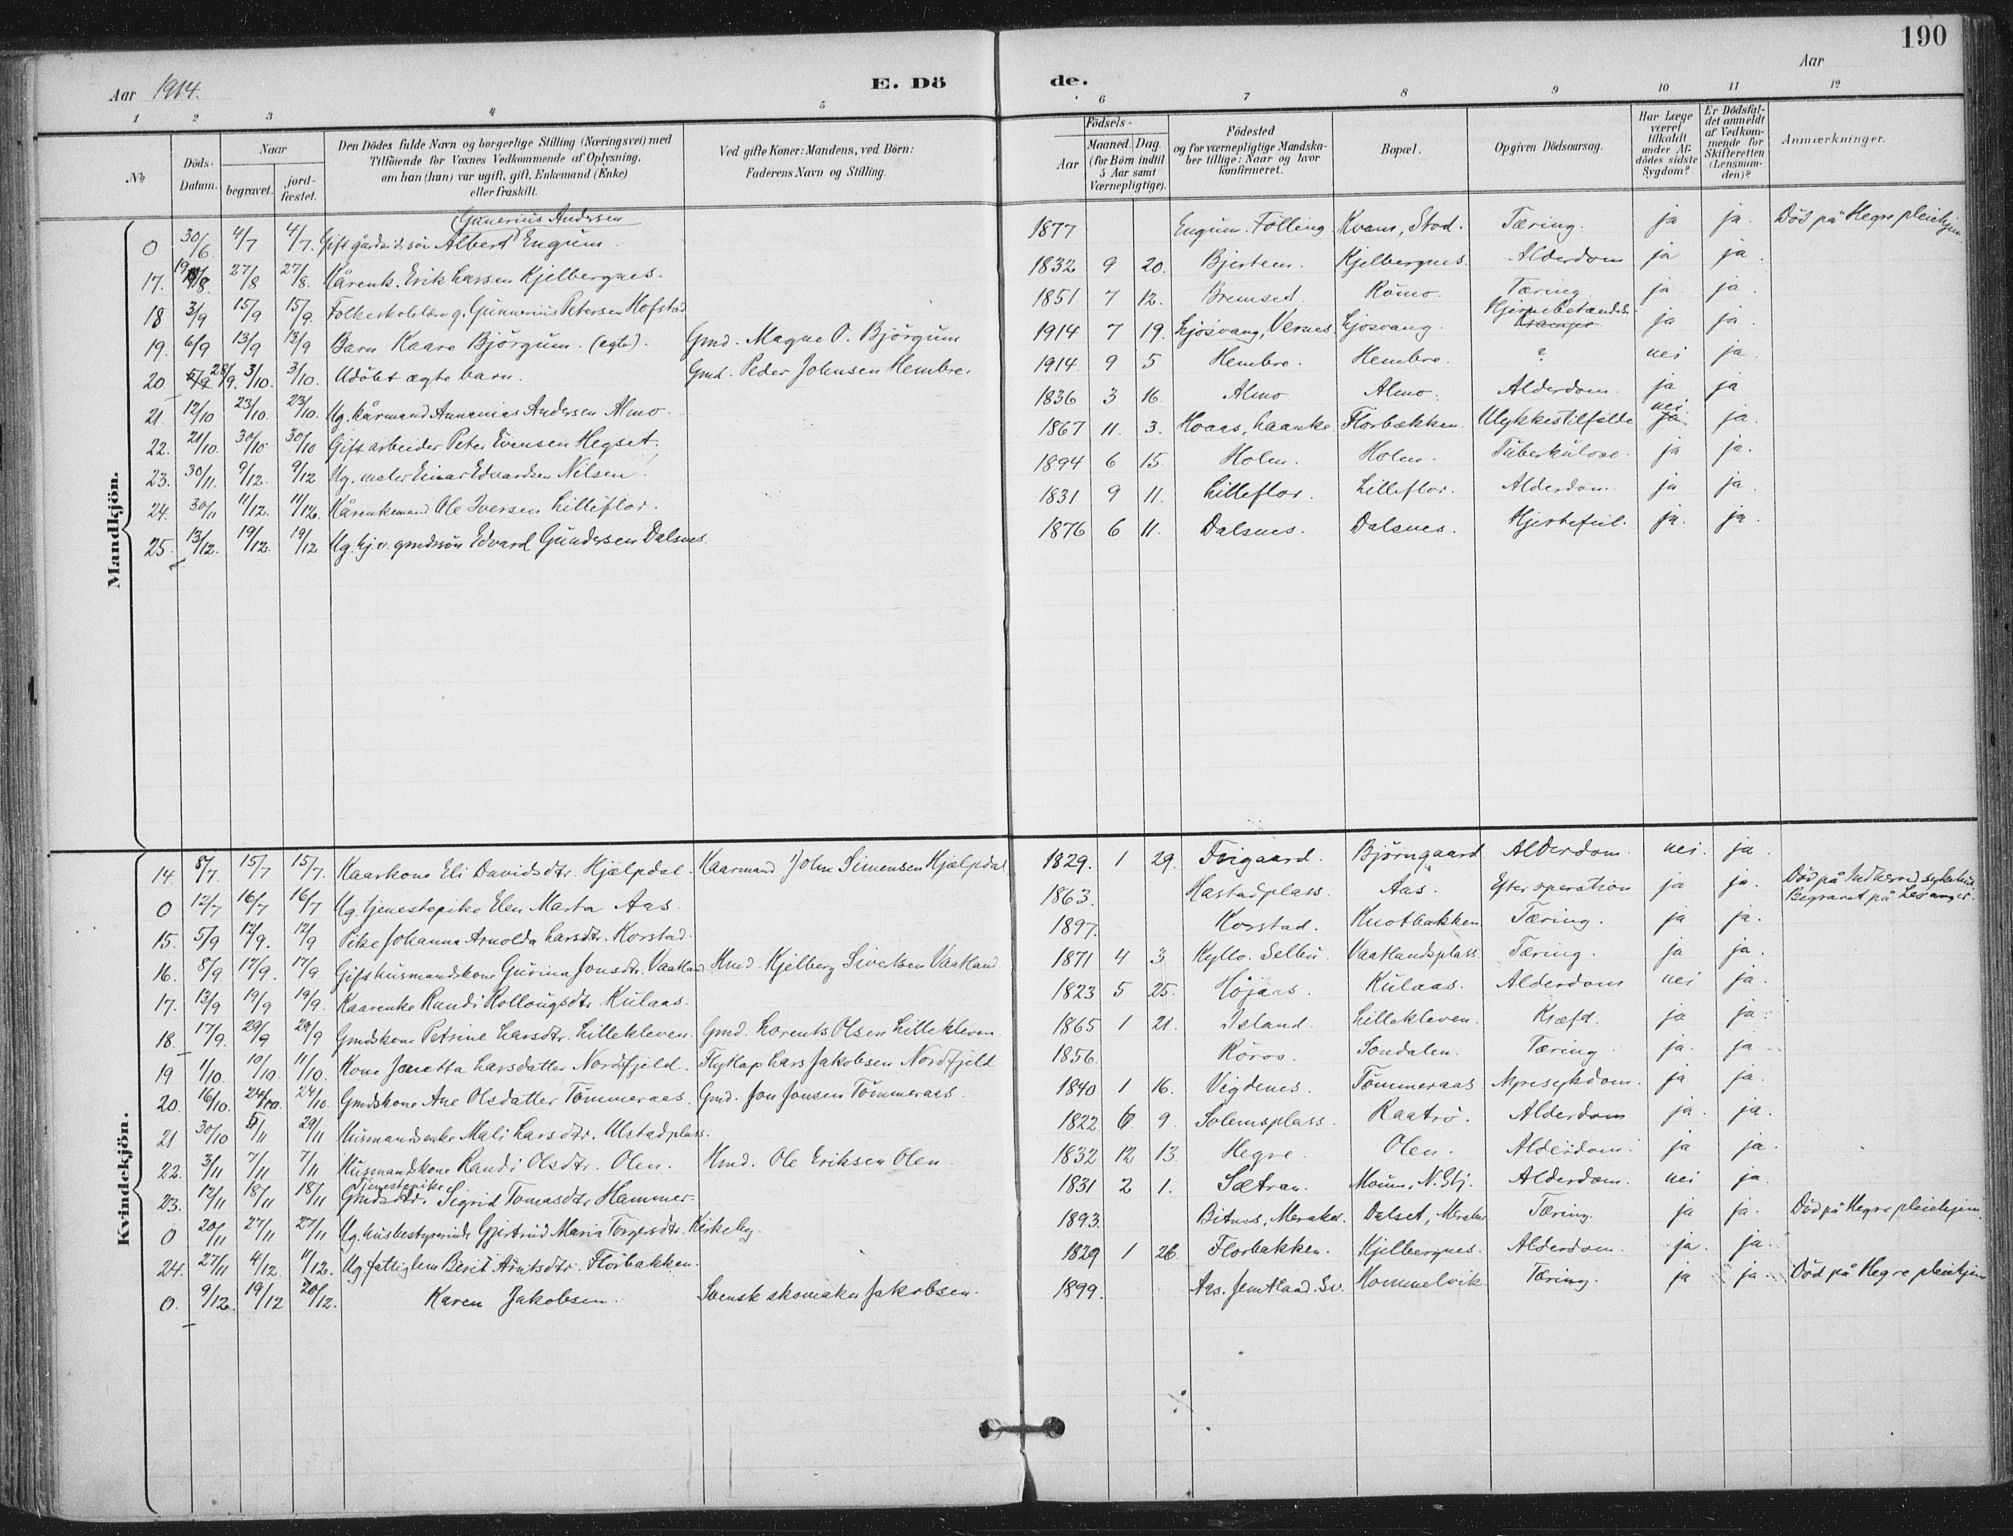 190
Aar 1914. E. Dö de. Aar
1 2 3 4 5 6 7 8 9 10 11 12
№
Döds-Datum.
Naar begravet. jordfæstet.
Den Dödes fulde Navn og borgerlige Stilling (Næringsvei) med
Tilföiende for Voxnes Vedkommende af Oplysning,
om han (hun) var ugift, gift, Enkemand (Enke)
eller fraskilt.
Ved gifte Koner: Mandens, ved Börn:
Faderens Navn og Stilling.
Födsels-
Aar Maaned. Dag.
(for Börn indtil
5 Aar samt
Værnepligtige).
Födested
og for værnepligtige Mandska-
ber tillige: Naar og hvor
konfirmeret.
Bopæl.
Opgiven Dödsaarsag.
Har Læge
været
tilkaldt
under Af-
dödes sidste
Sygdom?
Er Dödsfal-
det anmeldt
af Vedkom-
mende for
Skifteretten
(Lensman-
den)?
Anmærkninger.
Mandkjön.
Gunerius Andersen
0 30/6 4/7 4/7. Gift gårdmdsön Albert Engum. 1877 Engum. Fölling Kvam, Stod. Tæring. ja ja. Död på Hegre pleiehjem.
17. 19/8. 27/8 27/8. Kårenk. Erik Larsen Kjelbergnes. 1832 9 20. Bjertem. Kjelbergnes. Alderdom ja ja.
18 3/9 15/9 15/9. Folkeskolelær. g. Gunnerius Petersen Hofstad 1851 7 12. Bremset. Römo. Tæring ja ja.
19. 6/9 13/9 13/9 Barn Kaare Björgum. (egte). Gmd. Magne O. Björgum 1914 7 19. Ljosvang, Vernes Ljosvang. Hjernebetændelse ja ja.
20 28/9. 3/10. 3/10. Udöbt ægte barn. Gmd. Peder Johnsen Hembre. 1914. 9 5 Hembre. Hembre. ? nei ja.
21 12/10 23/10. 23/10. Ug. kårmand Annanias Andersen Almo. 1836 3 16. Almo Almo. Alderdom. ja ja
22. 21/10. 30/10 30/10 Gift arbeider Peter Evensen Hegset. 1867 11. 3. Hoaas, Laanke. Florbakken. Ulykkestilfælde nei. ja.
23. 30/11. 9/12. 9/12 Ug. maler Einar Edvardsen Nilsen 1894 6 15. Holen. Holen. Tuberkulose. ja ja.
24. 30/11 11/12. 11/12. Kårenkemand Ole Iversen Lilleflor. 1831 9 11. Lilleflor. Lilleflor. Alderdom. ja ja.
25. 13/12. 19/12. 19/12 Ug. hjv. gmdsön Edvard Gundersen Dalsnes. 1876 6 11. Dalsnes. Dalsnes. Hjertefeil. ja. ja.
Kvindekjön.
14. 8/7. 15/7 15/7. Kaarkone Eli Davidsdtr. Hjælpdal. Kaarmand John Simensen Hjælpdal 1829. 1 29. Trigaard. Björngaard Alderdom. nei. ja.
0 12/7 16/7 16/7 Ug. tjenestepike Elen Marta Aas. 1863. Hastadplass. Aas. Efter operation ja ja. Död på Indherred sykehus
Begravet på Levanger.
15. 5/9 12/9. 12/9 Pike Johanna Arnolda Larsdtr. Korstad. 1897. Korstad. Knotbakken Tæring. ja ja.
16. 8/9 17/9. 17/9 Gift husmandskone Gurina Jonsdtr. Vaatland Hmd Kjelberg Sivertsen Vaatland 1871 4 3 Kyllo. Selbu. Vaatlandsplass Tæring. ja ja.
17. 13/9 19/9 19/9. Kaarenke Randi Rollougsdtr. Kulaas. 1823 5 25. Kulaas. Alderdom nei ja
18. 17/9. 29/9 29/9 Gmdskone Petrine Larsdtr. Lillekleven. Gmd. Lorents Olsen Lillekleven 1865 1 21. Island. Lillekleven. Kræft. ja ja.
19 1/10. 10/10 11/10. Kone Jonetta Larsdatter Nordfjeld. Flytlap Lars Jakobsen Nordfjeld 1856. Röros. Sondalen. Tæring. ja. ja
20. 16/10. 24/10. 24/10. Gmdskone Ane Olsdatter Tömmeraas. Gmd. Jon Jonsen Tömmeraas. 1840 1 16. Vigdenes. Tömmeraas Nyresykdom. ja ja.
21 30/10 5/11 29/11 Husmandsenke Mali Larsdtr. Ulstadplass. 1822 6 9. Solemsplass. Raatrö. Alderdom ja. ja.
22. 3/11 7/11 7/11 Husmandskone Randi Olsdtr. Olen. Hmd. Ole Eriksen Olen. 1832 12 13. Hegre. Olen. Alderdom. ja ja.
Tjenestepike
23. 12/11 18/11 18/11 Gmdsdtr. Sigrid Tomasdtr. Hammer. 1831 2 1. Sætran. Moum, N. Stj. Alderdom. nei ja.
0 20/11 27/11 27/11 Ug. husbestyrerinde Gjertrud Maria Torgersdtr. Kirkeby. 1893. Bitnes, Meraker. Dalset, Meraker Tæring. ja ja. Död på Hegre pleiehjem.
24. 27/11 4/12. 11/12. Ug. fattiglem Berit Arntsdtr. Florbakken. 1829 1 26. Florbakken. Kjelbergnes. Alderdom. ja. ja.
0. 9/12. 19/12 20/12. Karen Jakobsen. Svensk skomaker Jakobsen. 1899. Aas. Jemtland. Sv. Hommelvik Tæring. ja ja. Död på Hegre pleiehjem